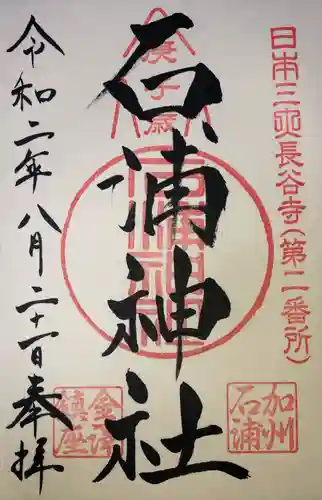 日本三大長谷寺(第二番所)
庚子歳
石浦神社
加州
石浦
金澤
鎮座
令和二年八月二十一日奉拝